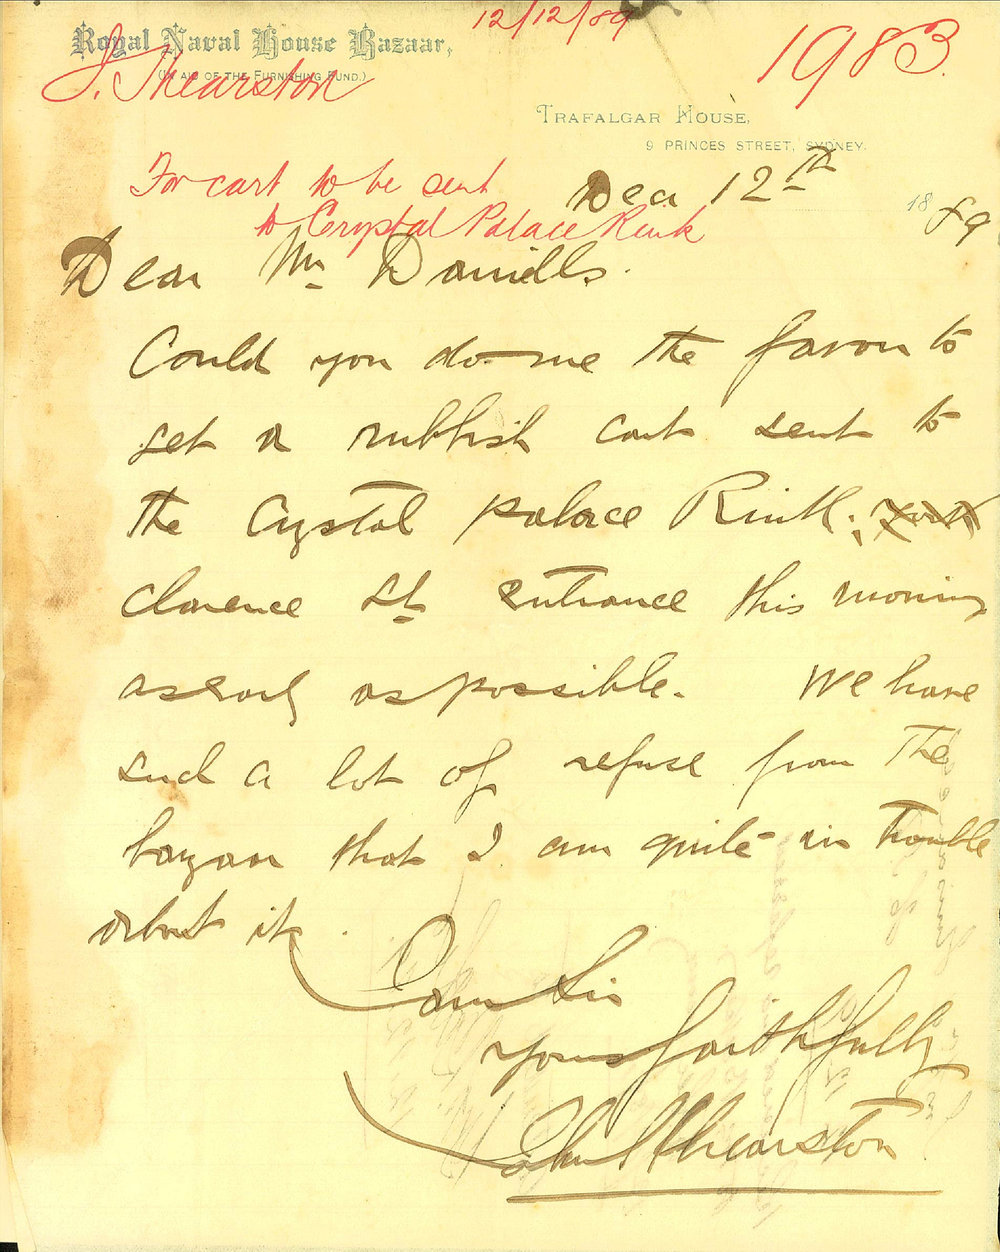 12/12/89
Royal Naval House Bazaar,
(IN AID OF THE FURNISHING FUND.)
J. Shearston
1983.
TRAFALGAR HOUSE,
9 PRINCES STREET, SYDNEY.
For cart to be sent
to Crystal Palace Rink
Dec 12th 1889
Dear Mr Daniells.
Could you do me the favor to
get a rubbish cart sent to
the Crystal palace Rink;
clarence St entrance this morning
as early as possible. We have
such a lot of refuse from the
bazaar that I am quite in trouble
about it.
I am Sir
yours faithfully
John S Shearston